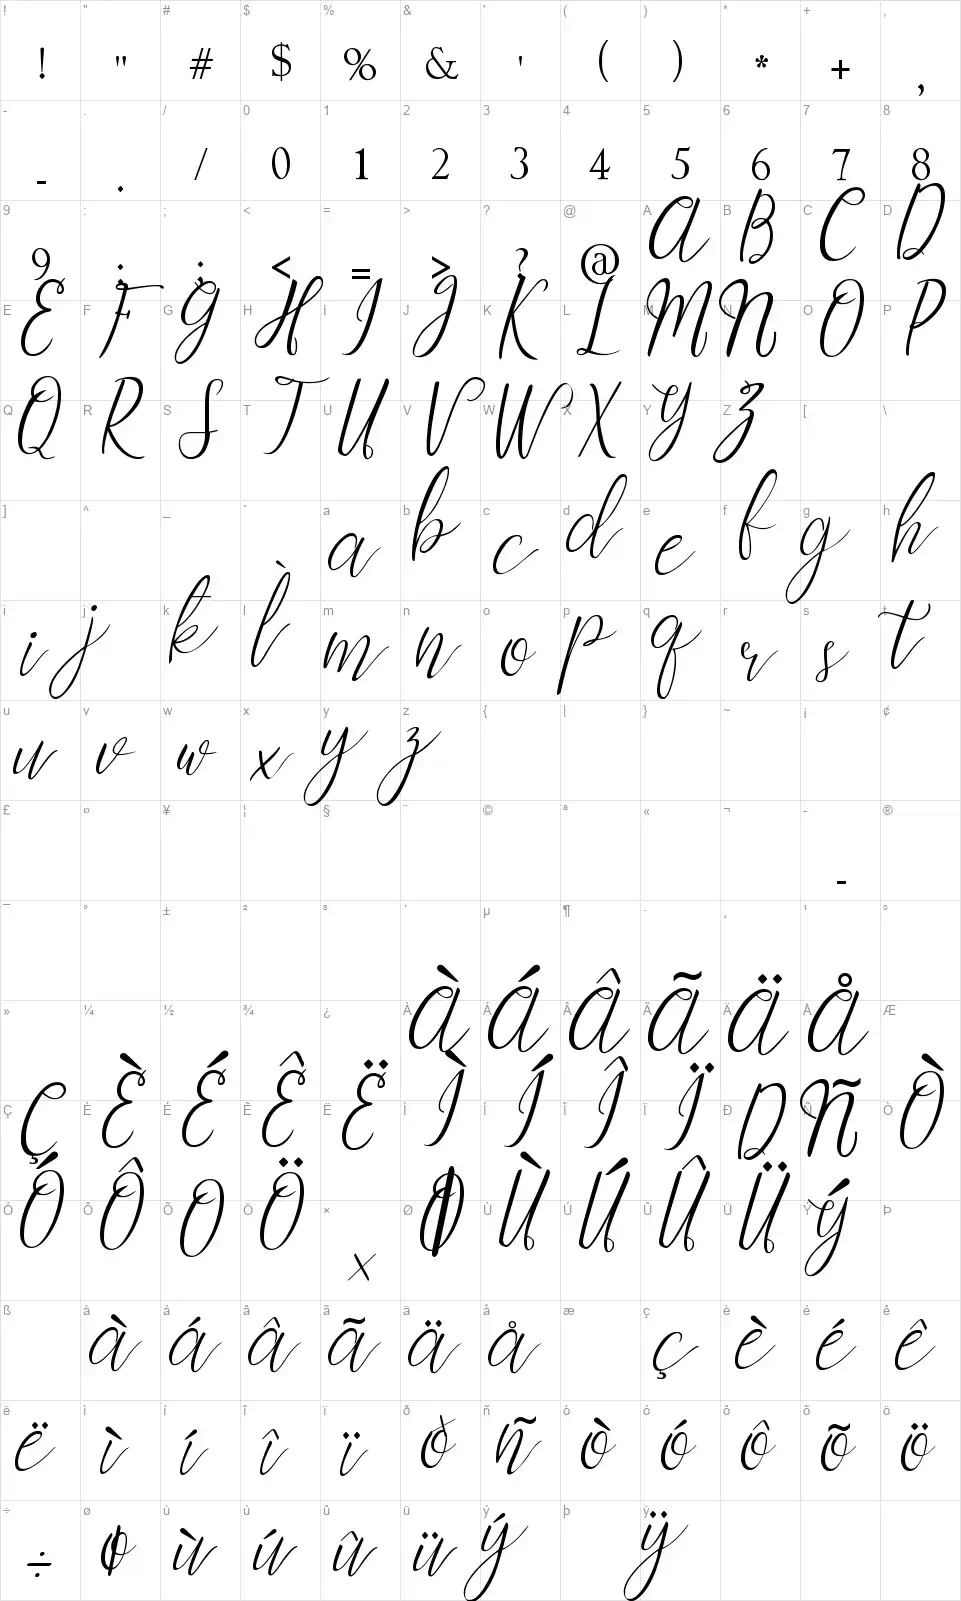 ! " # $ % & ' ( ) * + ,
! " # $ % & ' ( ) * + ,
- . / 0 1 2 3 4 5 6 7 8
- . / 0 1 2 3 4 5 6 7 8
9 : ; < = > ? @ A B C D
9 : ; < = > ? @ A B C D
E F G H I J K L M N O P
E F G H I J K L M N O P
Q R S T U V W X Y Z [ \
Q R S T U V W X Y Z
] ^ _ ` a b c d e f g h
a b c d e f g h
i j k l m n o p q r s t
i j k l̀ m n o p q r s t
u v w x y z { | } ~ ¡ ¢
u v w x y z
£ ¤ ¥ ¦ § ¨ © ª « ¬ - ®
-
¯ ° ± ² ³ ´ µ ¶ · ¸ ¹ º
» ¼ ½ ¾ ¿ À Á Â Ã Ä Å Æ
À Á Â Ã Ä Å
Ç È É Ê Ë Ì Í Î Ï Ð Ñ Ò
Ç È É Ê Ë Ì Í Î Ï D Ñ Ò
Ó Ô Õ Ö × Ø Ù Ú Û Ü Ý Þ
Ó Ô O Ö × Ø Ù Ú Û Ü Ý
ß à á â ã ä å æ ç è é ê
à á â ã ä å ç è é ê
ë ì í î ï ð ñ ò ó ô õ ö
ë ì í î ï ð ñ ò ó ô õ ö
÷ ø ù ú û ü ý þ ÿ
÷ ø ù ú û ü ý ÿ